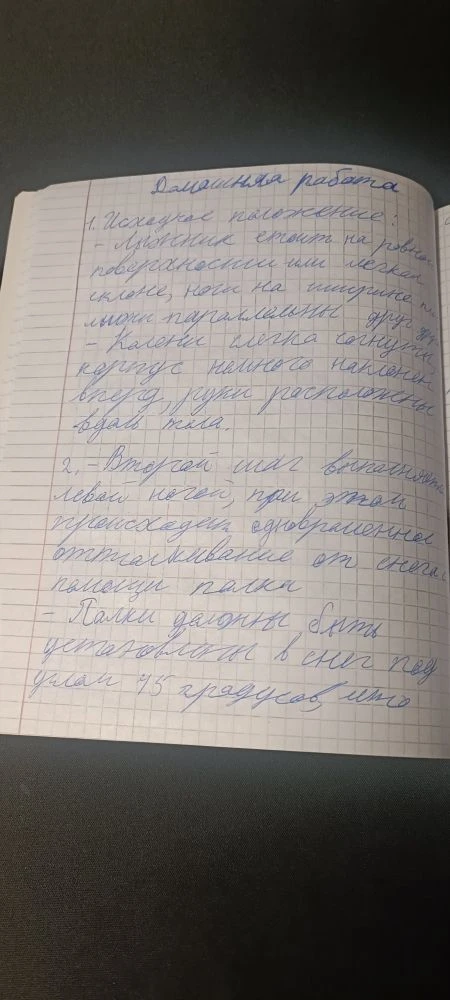 Домашняя работа
1. Исходное положение:
- Лыжник стоит на ровно
поверхности или легком
склоне, ноги на ширине пл
лыжи параллельны друг дру
- Колени слегка согнуты
корпус немного наклонен
вперд, руки расположены
вдоль тела.
2. - Второй шаг выполняет
левой ногой, при этом
происходит одновременное
отталкивание от снега с
помощи палки
- Палки должны быть
установлены в снег под
углом 45 градусов, что